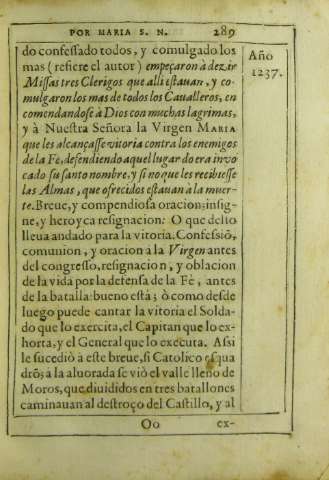 POR MARIA S. N. 289
Año
1237.
do confessado todos, y comulgado los
mas (refiere el autor) empeçaron à dezir
Missas tres Clerigos que alli estauan, y co-
mulgaron los mas de todos los Caualleros, en
comendandose à Dios con muchas lagrimas,
y à Nuestra Señora la Virgen MARIA
que les alcançasse vitoria contra los enemigos
de la Fè, defendiendo aquel lugar do era invo
cado su santo nombre, y si no que les recibiesse
las Almas, que ofrecidos estauan à la muer-
te. Breue, y compendiosa oracion, insig-
ne, y heroyca resignacion: O que dello
lleua andado para la vitoria. Confessiõ,
comunion, y oracion à la Virgen antes
del congresso, resignacion, y oblacion
de la vida por la defensa de la Fè, antes
de la batalla: bueno està; ò como desde
luego puede cantar la vitoria el Solda-
do que lo exercita, el Capitan que lo ex-
horta, y el General que lo executa. Assi
le sucediò à este breue, si Catolico esqua
drõ; à la aluorada se viò el valle lleno de
Moros, que diuididos en tres batallones
caminauan al destroço del Castillo, y al
Oo
ex-